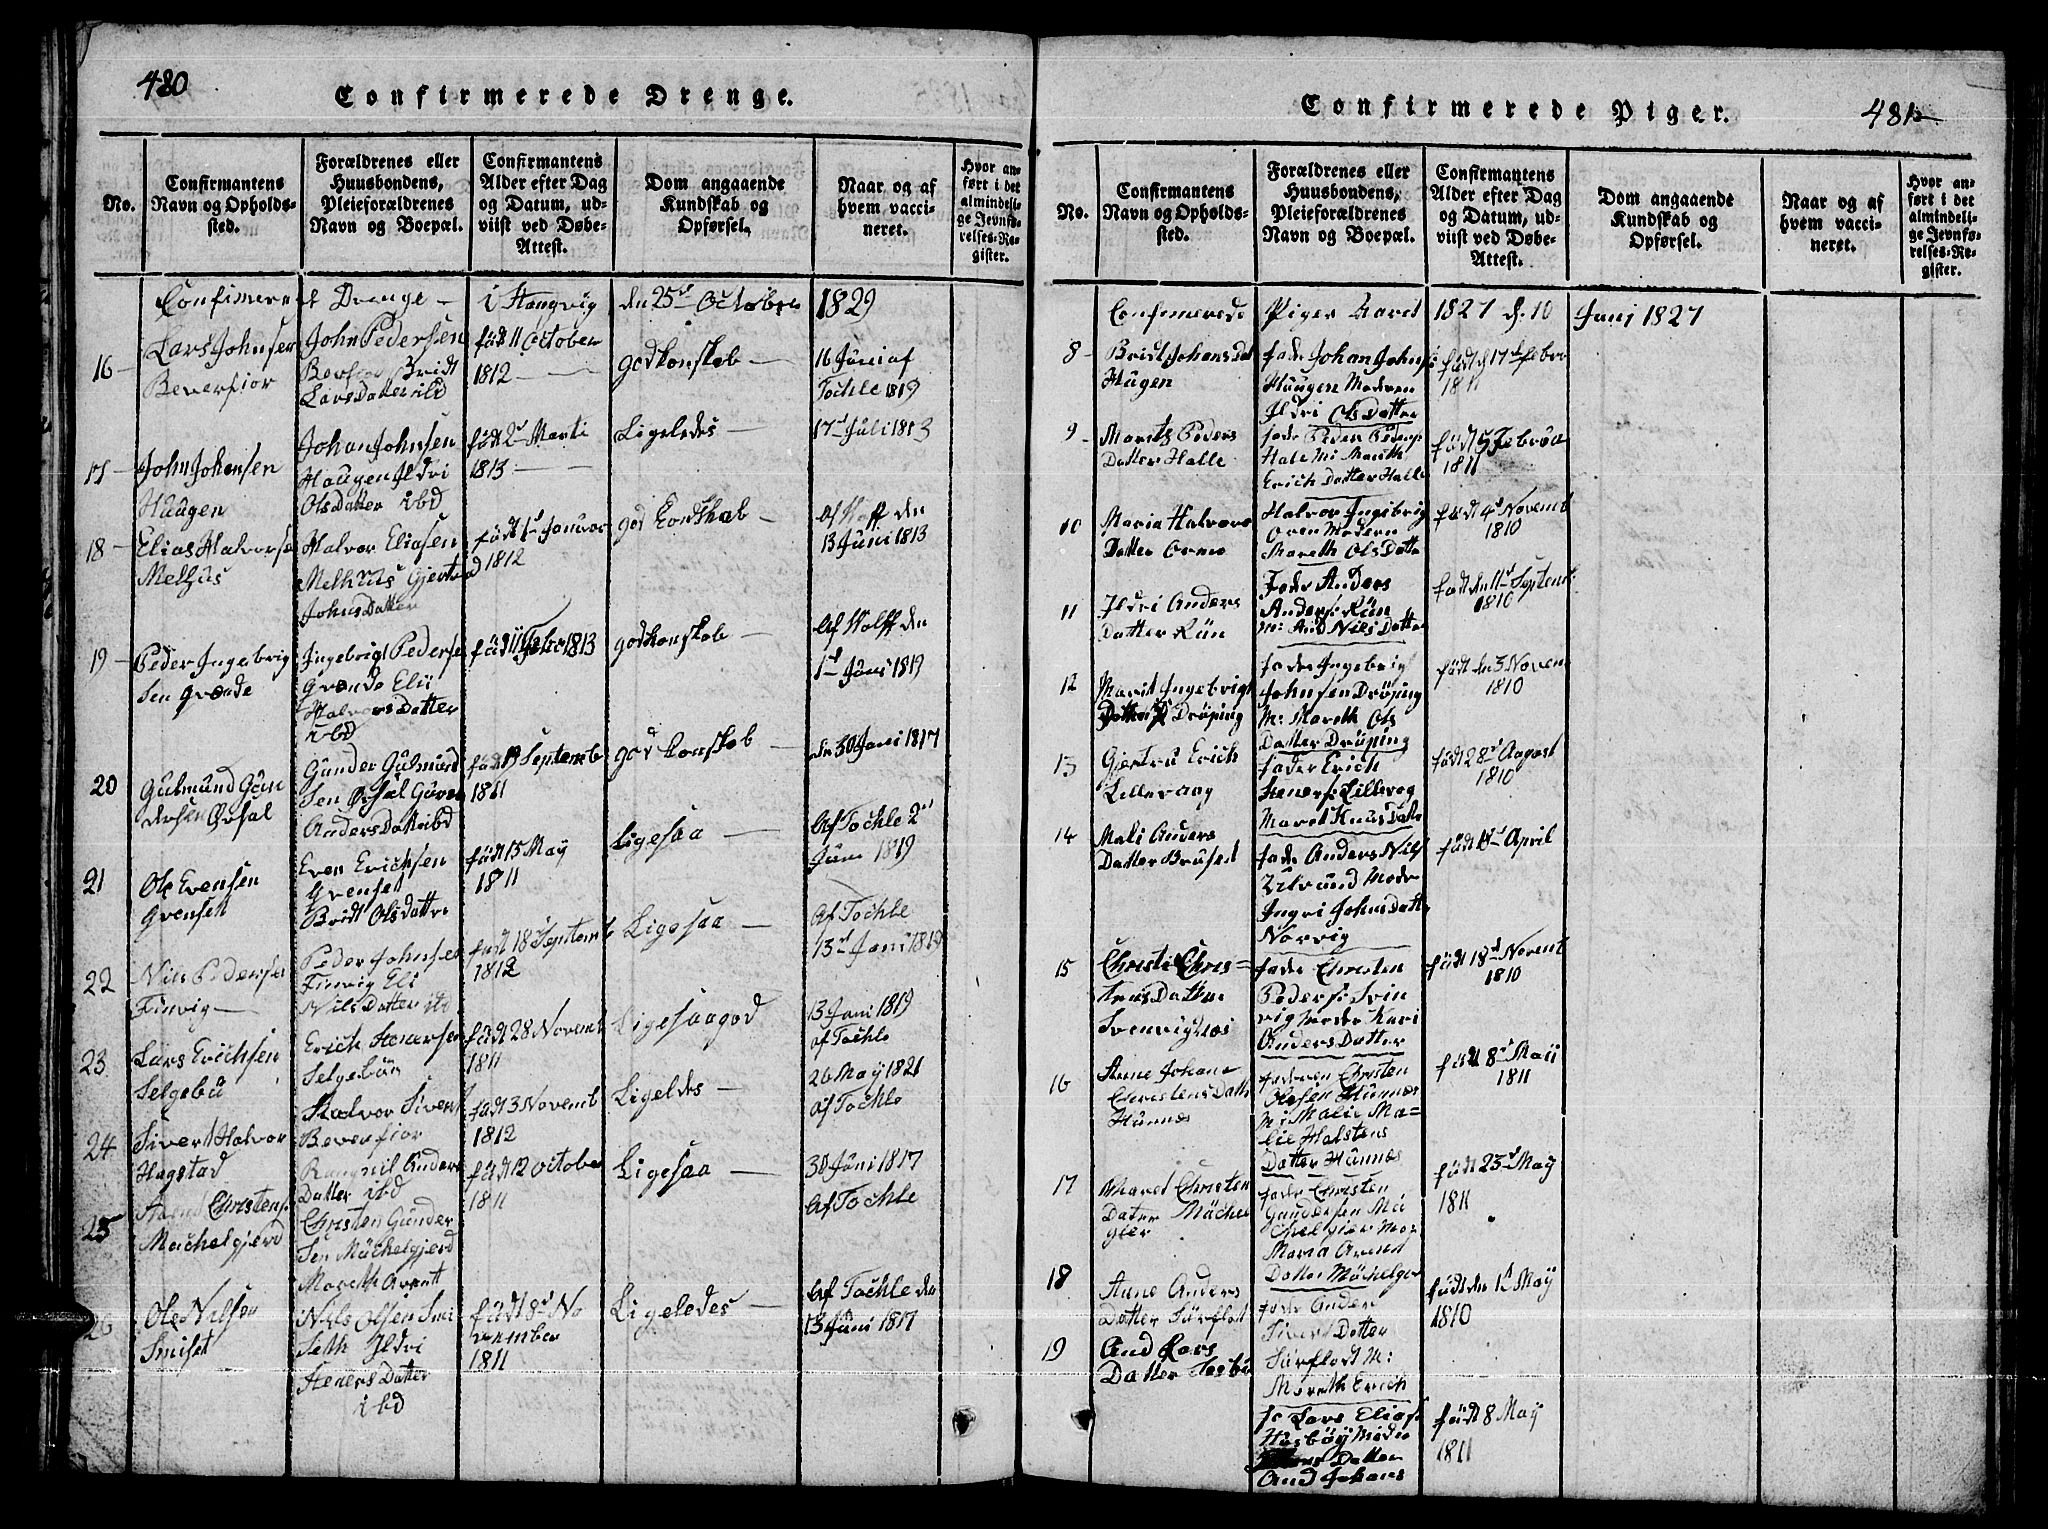 480
Confirmerede Drenge.
No.
Confirmantens
Navn og Opholds-
sted.
Forældrenes eller
Huusbondens,
Pleieforældrenes
Navn og Boepæl.
Confirmantens
Alder efter Dag
og Datum, ud-
viist ved Døbe-
Attest.
Dom angaaende
Kundskab og
Opførsel.
Naar og af
hvem vacci-
neret.
Hvor an-
ført i det
almindeli-
ge Jevnfø-
relses-Re-
gister.
Confimere t Drenge - i Stangvig den 25d October 1829
16 -
Lars Johnsen
Beverfior
John Pedersen
Bridt
Lars Datter ibd
født 11 October
1812 -
godkonskob -
16 Juni af
Tochle 1819
17 -
John Johansen
Haugen
Johan Johnsen
Haugen Ildri
Ols Datter ibd
født 2d Marti
1813 -
Ligeledes -
17d Juli 1813
18 -
Elias Halvorse
Melhus
Halvor Eliasen
Melhus Gjertrud
Johns Datter
født 1d Januar
1812
god konskab -
af Wolff den
13 Juni 1813
19 -
Peder Ingebrig
sen Grænde
Ingebrigt Pederse
Grænde Eli
Halvors Datter
ibd
født 11 Febr 1813
godkonskob -
Af Wolff den
1d Juni 1819
20
Gulmund Gun
dersen Øvsal
Gunder Gulmund
sen Øvsal
Anders Datter ibd
født 19 Septemb
1811
god konskob -
dn 30 Juni 1817
21
Ole Evensen
Grenset
Even Erichsen
Grenset
Bridt Ols datter
født 15 May
1811
Ligesaa -
Af Tochle 2d
Juni 1819
22
Nils Pedersen
Finvig -
Peder Johnsen
Finvig Eli
Nils Datter ibd
født 18 Septemb
1812
Ligesaa -
Af Tochle
13d Juni 1819
23
Lars Erichsen
Selgebu
Erich
Selgebu
født 28 Novemb
1811
Ligesaagod
13 Juni 1819
af Tochle
24
Sivert Halvor
Hagstad
Halvor Sivert
Beverfior
Rangnil Anders
Datter ibd
født 3 Novemb
1812
Ligeldes -
26 May 1821
af Tochle
25
Christens.
Mæchelgjerd
Christen Gunder
sen Mæchelgjerd
Mareth Arent
født 12 October
1811
Ligesaa -
30 Juni 1817
Af Tochle
26
Ole Nilsen
Smiset
Nils Olsen Smi
seth Ildri
Steners Datter
ibd
født 8d No
vember
1811
Ligeledes -
Af Tochle den
13 Juni 1817
Confirmerede Piger.
481
No.
Confirmantens
Navn og Opholds-
sted.
Forældrenes eller
Huusbondens,
Pleieforældrenes
Navn og Boepæl.
Confirmantens
Alder efter Dag
og Datum, ud-
viist ved Døbe-
Attest.
Dom angaaende
Kundskab og
Opførsel.
Naar og af
hvem vacci-
neret.
Hvor an-
ført i det
almindeli-
ge Jevnfø-
relses-Re-
gister.
Confimerede Piger Aaret 1827 d. 10 Juni 1827
8 -
Bridt Johans dat
Hugen
fade Johan Johns
Haugen Moderen
Ildri Ols Datter
født d 17d febr
1811
9 -
Marits Peders
Datter Halle
fade Peder Peders
Hale M: Mareth
Erich Datter Halle
født 5 Februa
1811
10
Maria Halvors
Datter Ormo
Halvor Ingebrig
Moderen
Mareth Ols Datte
født 4d Novemb
1810
11
Ildri Anders
Datter Rün
Fade Anders
Anders: Rün
M: And Nils Datter
født den 11d Septemb
1810
12
Marit Ingebrigt
Datter Drøping
fade Ingebrigt
Johnsen Drøping
M: Mareth Ols
Datter Drøping
født den 3 Novem
1810
13
Gjertru Erich
Lillevaag
fader Erich
Lillevog
Maret Knus Datte
født 28d August
1810
14
Mali Anders
Datter Bruset
fade Anders Nils
Ulvund Moder
Ingri Johns Datte
Norvig
født 1d April
15
Christi Chris=
tens Datter
Svenvignes
fade Christen
Peders: Svin
vig Moder Kari
Anders Datter
født 18d Novemb
1810
16
Anne Johane
Christens Datt
Hünnes
faderen Christen
Olesen Hunnes
M: Malie Ma=
lie Halstens
Datter Hünnes
født 8d May
1811
17
Maret Christen
Dater Mæchel
gier
fade Christen
Gundersen Mæ
chelgier Mo:
Maria Arent
Datter Mæchelger
født 23d May
1811
18
Anne Anders
Datter Sürflot
fade Ander
Sivert Datter
Sürflodt M:
Mareth Erich
født den 1d May
1810
19
And Lars
Datter
fa Lars Elias
Husbøy Moder
Datter
And Johans
født 8 May
1811